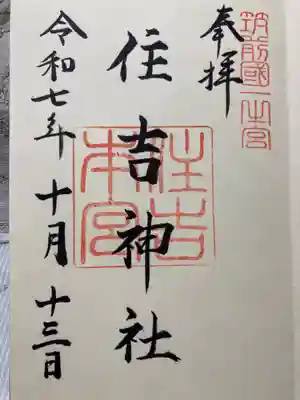 筑前國一之宮
奉拝
住吉神社
住吉本宮
令和七年十月十三日